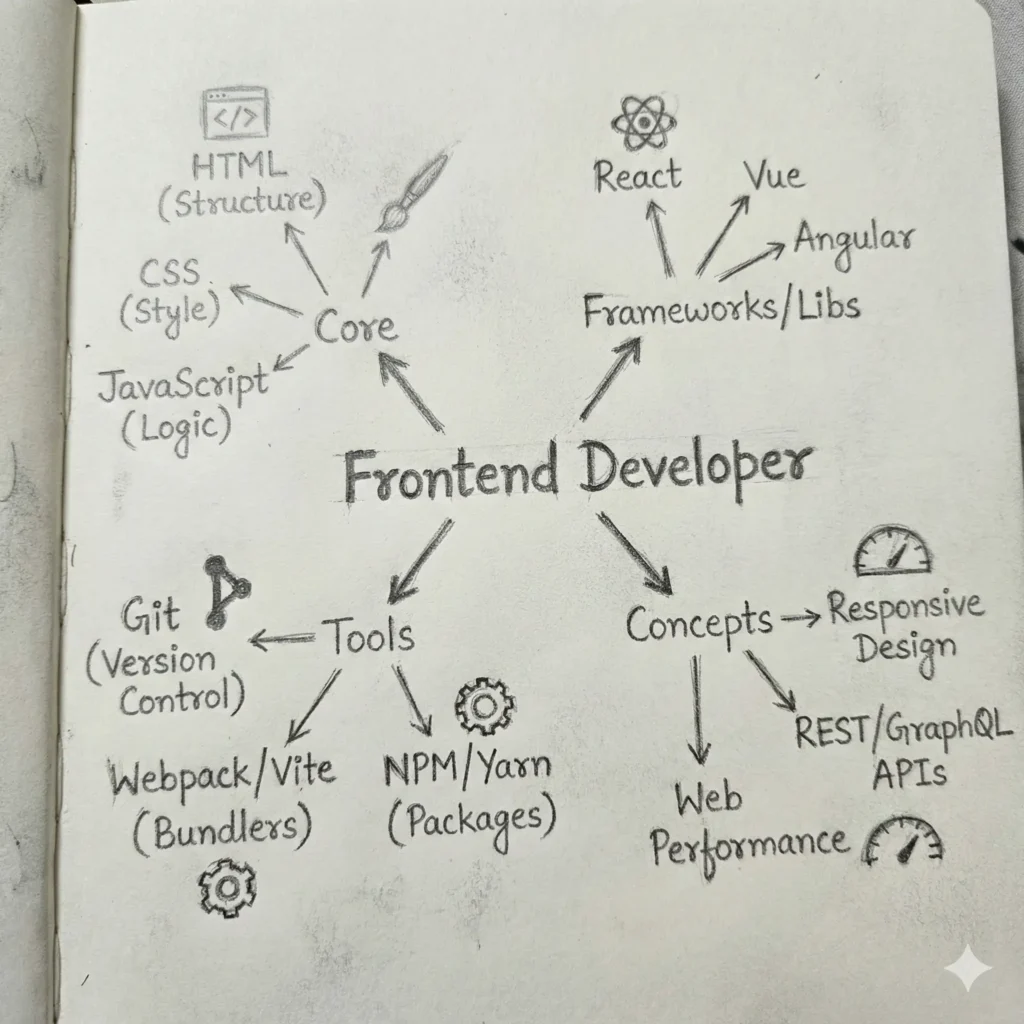 </>
HTML
(Structure)
CSS
(Style)
JavaScript
(Logic)
Core
React
Vue
Angular
Frameworks/Libs
Frontend Developer
Git
(Version
Control)
Tools
Webpack/Vite
(Bundlers)
NPM/Yarn
(Packages)
Concepts
Responsive
Design
REST/GraphQL
APIs
Web
Performance